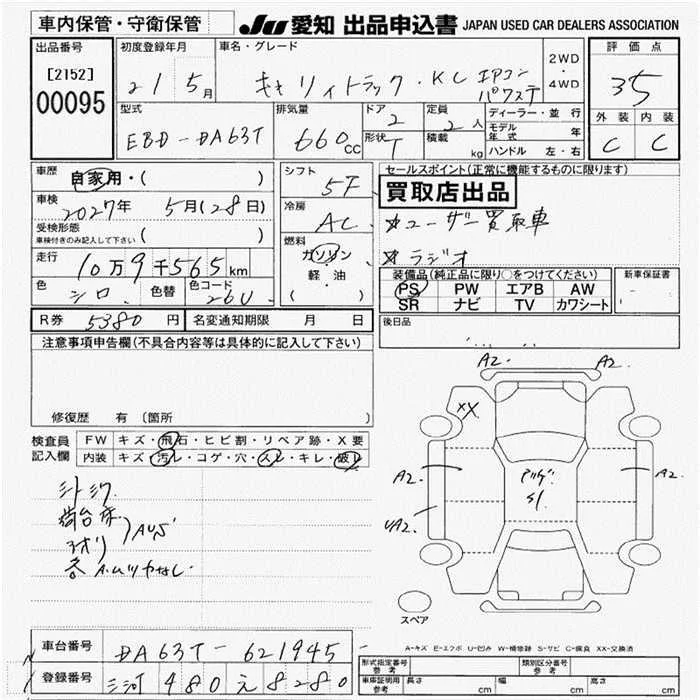 車内保管・守衛保管
JU 愛知 出品申込書 JAPAN USED CAR DEALERS ASSOCIATION
出品番号
[2152]
00095
初度登録年月
21 5月
車名・グレード
キャリィトラック・KC エアコン
パワステ
2WD
・
4WD
評価点
35
外装 内装
C C
型式
EBD-DA63T
排気量
660CC
ドア 2
形状 T
定員
2人
積載 kg
ディーラー・並行
モデル年式 年
ハンドル 左・右
車歴
自家用・( )
車検
2027年 5月(28日)
受検形態
車検付きのみ記入して下さい ( )
走行
10万9千565km
色 シロ 色替 色コード 26U
シフト
5F
冷房
AC
燃料
ガソリン
・
軽・油
( )
セールスポイント(正常に機能するものに限ります)
買取店出品
☆ユーザー買取車
☆ラジオ
装備品(純正品に限り○をつけてください)
PS PW エアB AW
SR ナビ TV カワシート
新車保証書
-
後日品
R券 5380円 名変通知期限 月 日
注意事項申告欄(不具合内容等は具体的に記入して下さい)
修復歴 有 〔箇所
検査員
記入欄
FW キズ・飛石・ヒビ割・リペア跡・X要
内装 キズ・汚レ・コゲ・穴・スレ・キレ・破レ
荷台
A2. A2.
XX
A2. A2.
UA2.
S1
スペア
A-キズ E-エクボ U-凹み W-補修跡 S-サビ C-腐食 XX-交換済
車台番号 DA63T-621945
登録番号 三河 480 え 8280
形式指定番号
参考
類別区分番号
参考
車庫証明用
参考
長さ cm 幅 cm 高さ cm